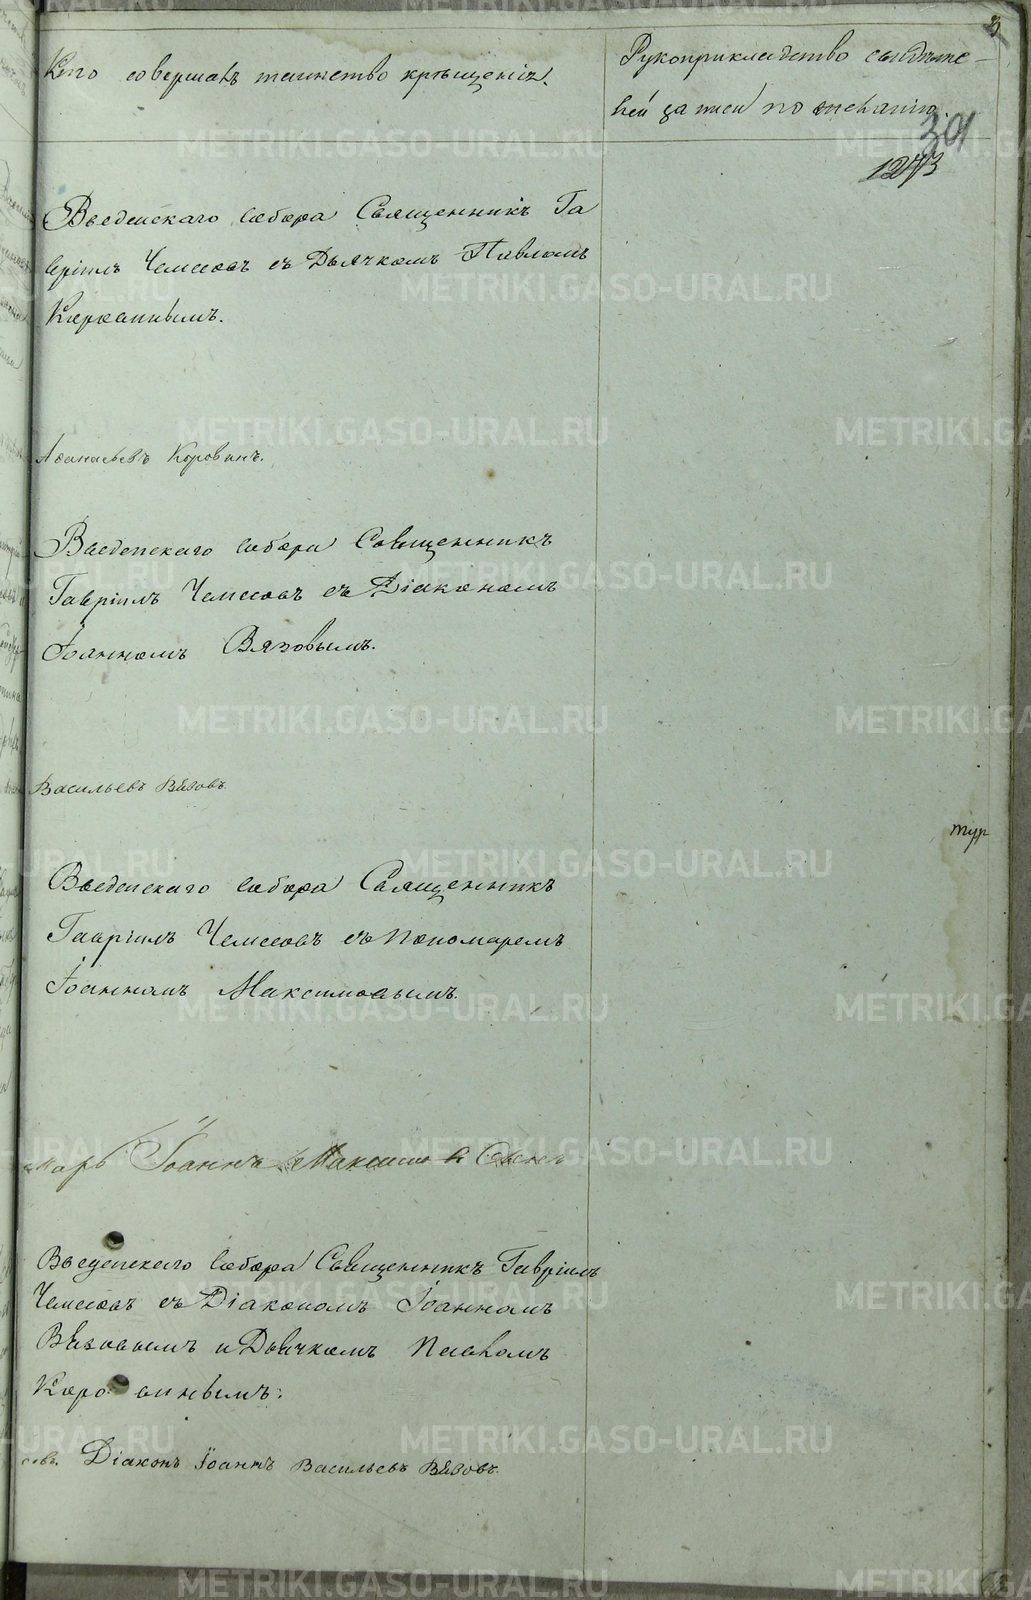 3
Кто совершалъ таинство крещенія.
Рукоприкладство свидѣте-
лей записи по желанію.
301
1273
Введенскаго собора Священникъ Га
вріилъ Чемесовъ съ Дьячкомъ Павломъ
Аѳанасьевъ Коровинъ.
Введенскаго собора Священникъ
Гавріилъ Чемесовъ съ Діакономъ
Іоанномъ Вязовымъ.
Васильевъ Вязовъ.
тур
Введенскаго собора Священникъ
Гавріилъ Чемесовъ съ Пономаремъ
Іоанномъ Максимовымъ.
марь Іоаннъ Максимов
Введенскаго собора Священникъ Гавріилъ
Чемесовъ съ Діакономъ Іоанномъ
Вязовымъ и Дьячкомъ Павломъ
совъ. Діаконъ Іоаннъ Васильевъ Вязовъ.
METRIKI.GASO-URAL.RU